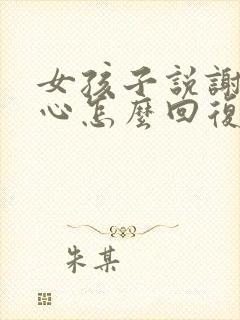 女孩子説謝
心怎麽回復
朱某